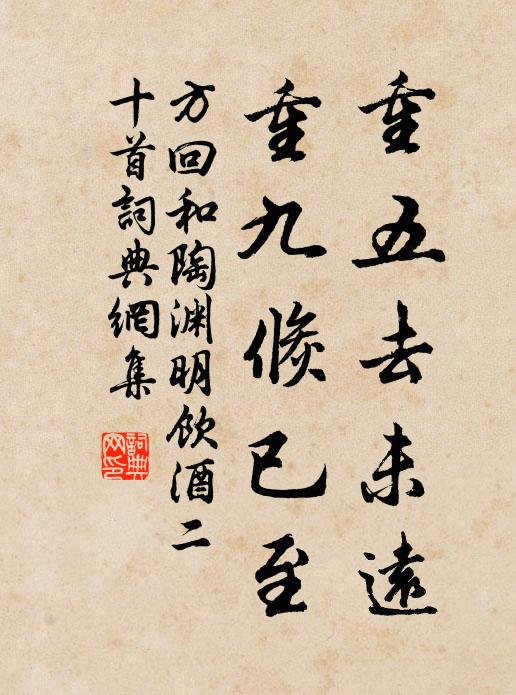 重五去未遠
重九倏已至
方回和陶淵明飲酒二
十首詞典網集
詞典
网印